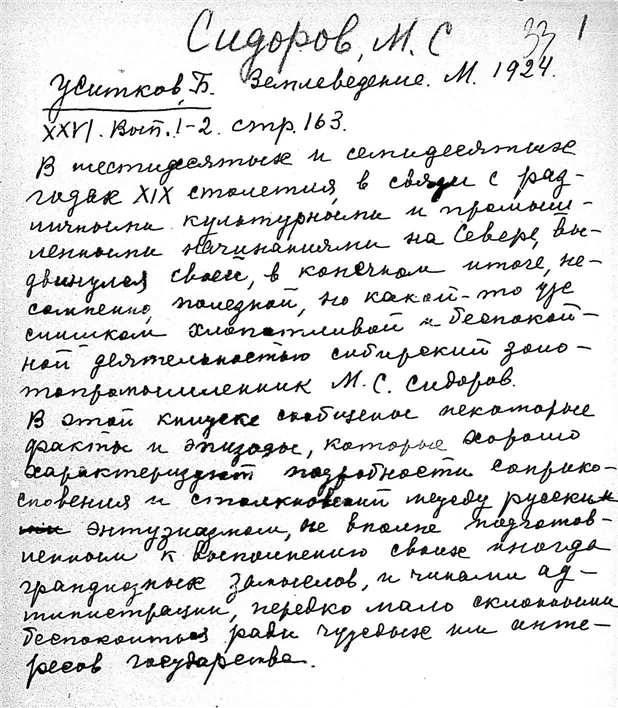 Сидоров, М. С 33 1
Житков, Б. Землеведение. М. 1924.
XXVI. Вып. 1-2. стр. 163.
В шестидесятых и семидесятых
годах XIX столетия, в связи с раз-
личными культурными и промыш-
ленными начинаниями на Севере, вы-
двинулся своей, в конечном итоге, не-
сомненно, полезной, но какой-то уж
слишком хлопотливой и беспокой-
ной деятельностью сибирский золо-
топромышленник М. С. Сидоров.
В этой книжке сообщены некоторые
факты и эпизоды, которые хорошо
характеризуют подробности соприко-
сновения и столкновений между русским
энтузиазмом, не вполне подготов-
ленным к выполнению своих иногда
грандиозных замыслов, и чинами ад-
министрации, нередко мало склонными
беспокоиться ради чуждых им инте-
ресов государства.